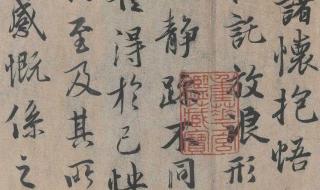 諸懷抱悟
託放浪形
靜躁不同
得於己快
至及其所
感慨係之